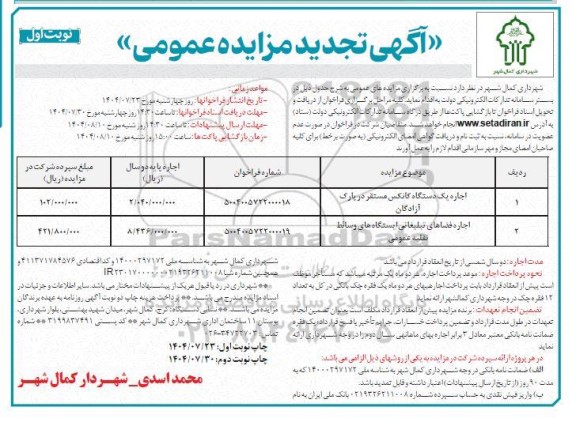 نوبت اول
«آگهی تجدید مزایده عمومی»
شهرداری کمال شهر
شهرداری کمال شهر در نظر دارد نسبت به برگزاری مزایده های عمومی به شرح جدول ذیل در
بستر سامانه تدارکات الکترونیکی دولت به اقدام نماید. کلیه مراحل برگزاری فراخوان از دریافت و
تحویل اسناد فراخوان تا بازگشایی پاکت ها از طریق درگاه سامانه تدارکات الکترونیکی دولت (ستاد)
به آدرس www.setadiran.ir انجام خواهد شد. متقاضیان شرکت در فراخوان در صورت عدم
عضویت در سامانه، نسبت به ثبت نام و دریافت گواهی امضای الکترونیکی (به صورت برخط) برای کلیه
صاحبان امضای مجاز و مهر سازمانی اقدام لازم را به عمل آورند
مواعد زمانی
- تاریخ انتشار فراخوانها: روز چهارشنبه مورخ ۱۴۰۴/۰۷/۲۳
- مهلت دریافت اسناد فراخوانها: تا ساعت ۱۴:۳۰ روز چهارشنبه مورخ ۱۴۰۴/۰۷/۳۰
- مهلت ارسال پیشنهادات: تا ساعت ۱۴:۳۰ مورخ ۱۴۰۴/۰۸/۱۰
- زمان بازگشایی پاکت ها: ساعت ۱۵:۰۰ مورخ ۱۴۰۴/۰۸/۱۰
ردیف موضوع مزایده شماره فراخوان اجاره بها دو سال (ریال) مبلغ سپرده شرکت در مزایده (ریال)
۱ اجاره یک دستگاه کانکس مستقر در پارک آزادگان ۵۰۰۴۰۰۵۷۲۲۰۰۰۰۱۸ ۲/۰۴۰/۰۰۰/۰۰۰ ۱۰۲/۰۰۰/۰۰۰
۲ اجاره فضاهای تبلیغاتی ایستگاه های وسائط نقلیه عمومی ۵۰۰۴۰۰۵۷۲۲۰۰۰۰۱۹ ۸/۴۳۶/۰۰۰/۰۰۰ ۴۲۱/۸۰۰/۰۰۰
مدت اجاره: دو سال شمسی از تاریخ انعقاد قرارداد می باشد
نحوه پرداخت اجاره: موعد پرداخت اجاره، هر دو ماه یک مرتبه میباشد که مستأجر موظف
است پیش از انعقاد قرارداد بابت پرداخت اجاره بهای هر دو ماه یک فقره چک بانکی در کل به تعداد
۱۲ فقره چک در وجه شهرداری کمالشهر ارائه نماید
تضمین انجام تعهدات: برنده مزایده پیش از انعقاد قرارداد مکلف است بعنوان تضمین انجام
تعهدات در طول مدت قرارداد و تضمین پرداخت خسارات، جرایم تأخیر یا فسخ قرارداد یک فقره
ضمانت نامه بانکی معتبر معادل ۳ برابر اجاره بهای ماهانه ی سال دوم را در وجه شهرداری ارائه
نماید
در هر پروژه ارائه سپرده شرکت در مزایده به یکی از روشهای ذیل الزامی می باشد:
الف) ضمانت نامه بانکی در وجه شهرداری کمال شهر به شناسه ملی ۱۴۰۰۰۲۹۷۱۷۲ که به
مدت ۹۰ روز (از تاریخ ارسال پیشنهادات) اعتبار داشته و قابل تمدید باشد.
ب) واریز فیش نقدی به حساب سپرده شماره ۰۲۱۹۳۲۶۲۱۱۰۰۸ بانک ملی ایران به نام
شهرداری کمال شهر به شناسه ملی ۱۴۰۰۰۲۹۷۱۷۲ و کد اقتصادی ۴۱۱۳۷۱۷۸۴۵۷۶ و
همچنین شماره شبا
** شهرداری در رد یا قبول هر یک از پیشنهادات مختار می باشد. سایر اطلاعات و جزئیات در
اسناد مزایده مندرج می باشد. ** پرداخت هزینه چاپ دو نوبت آگهی روزنامه به عهده برندگان
مزایده می باشد **
چاپ نوبت اول: ۱۴۰۴/۰۷/۲۳
چاپ نوبت دوم: ۱۴۰۴/۰۷/۳۰
محمد اسدی _ شهردار کمال شهر
ParsNamadData